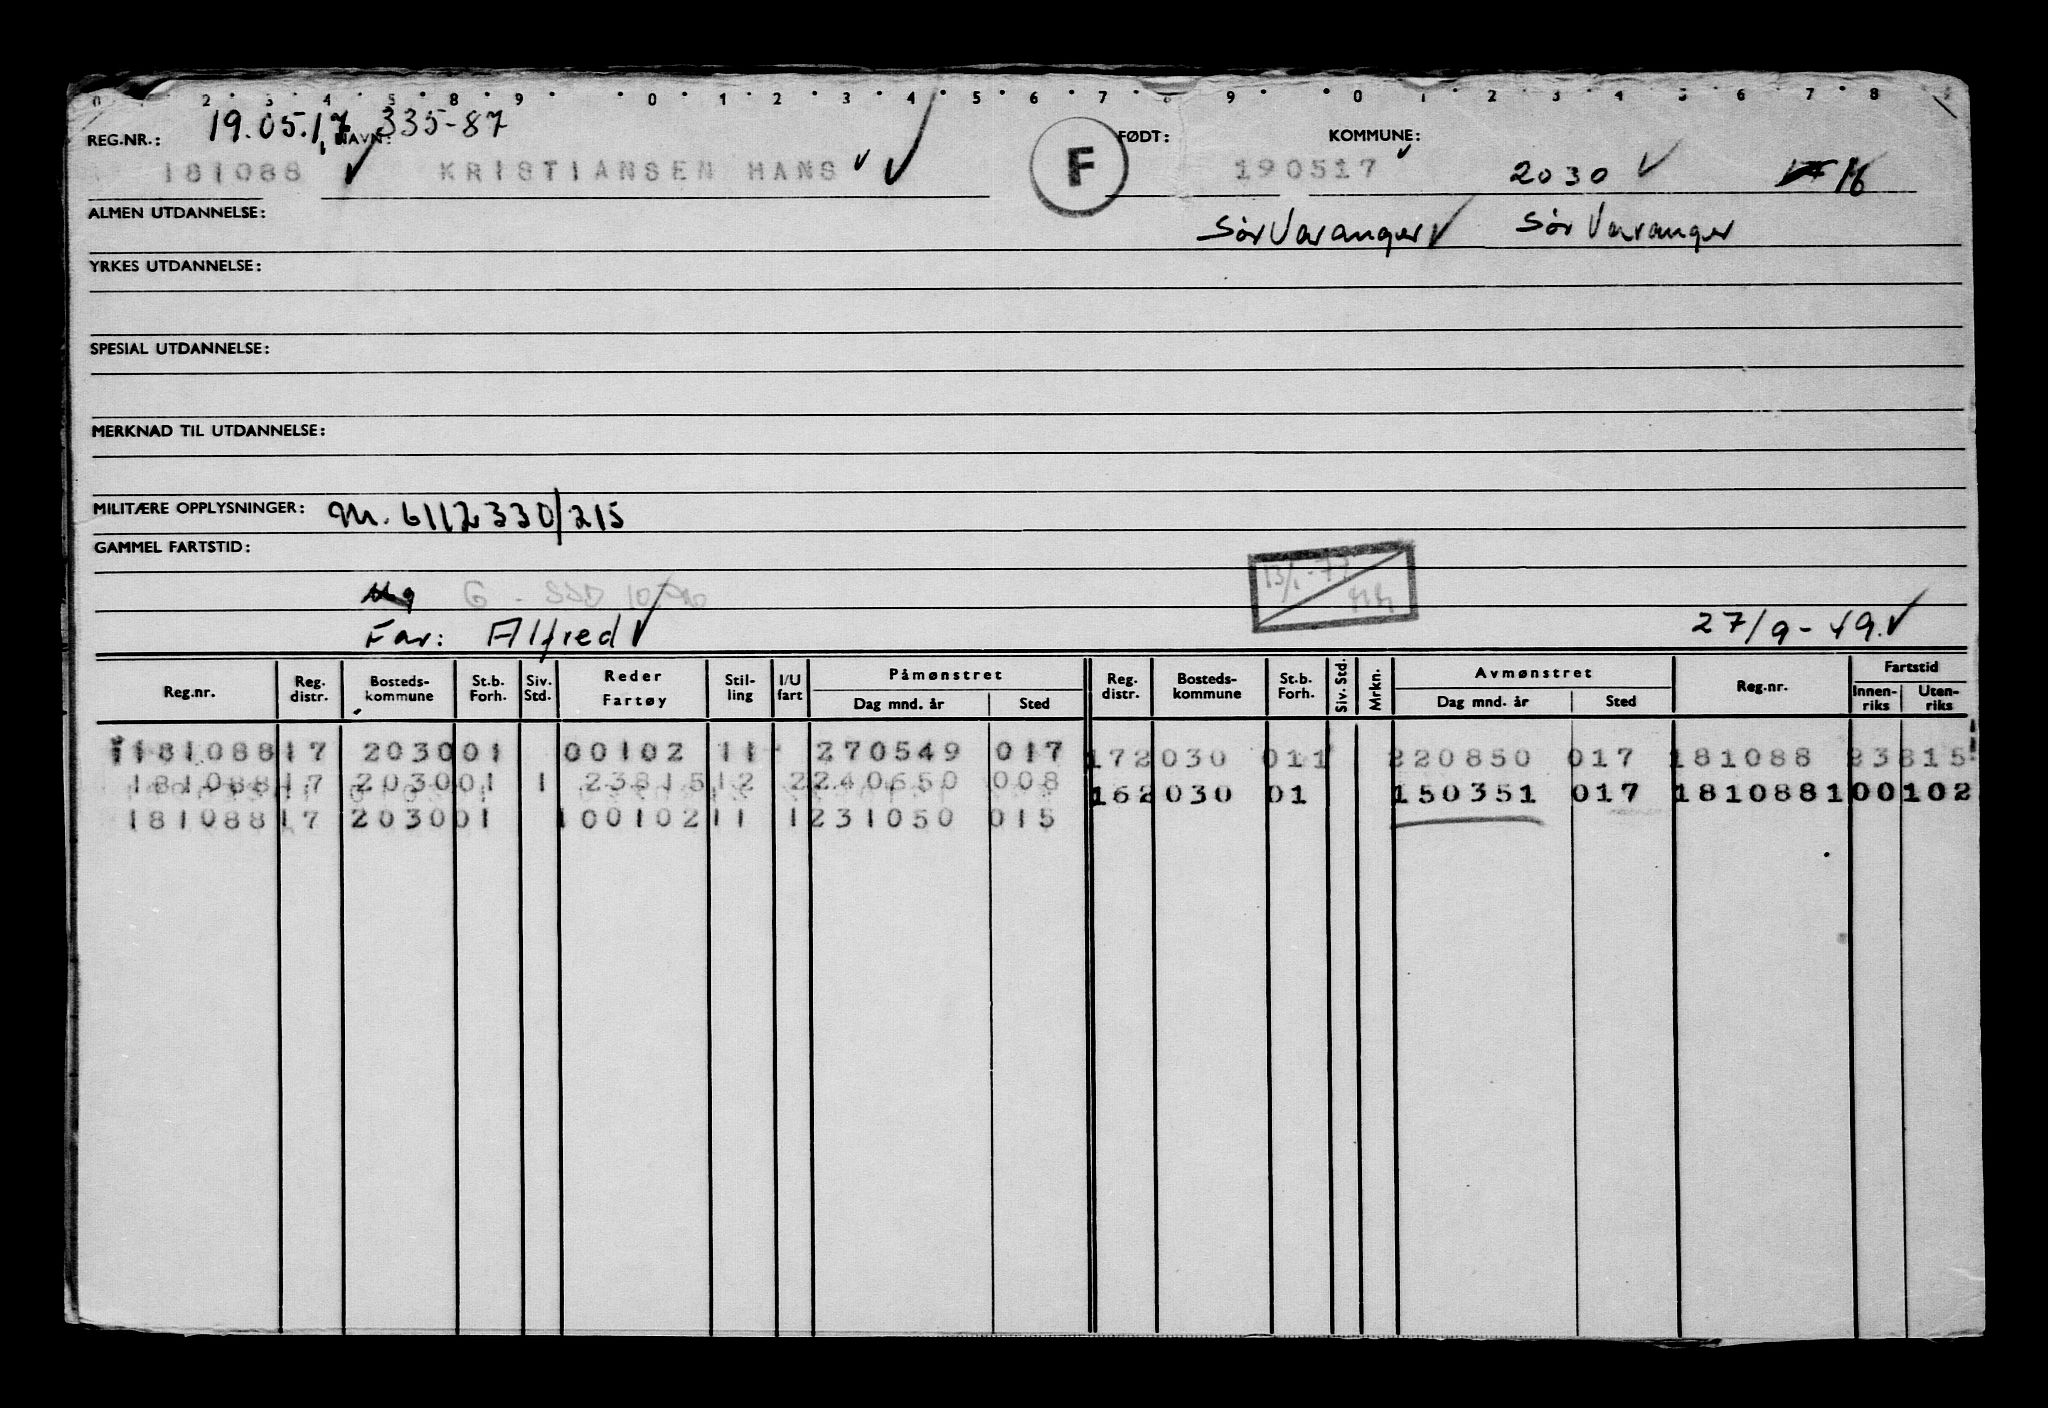 0 1 2 3 4 5 8 9 0 1 2 3 4 5 6 7 8 9 0 1 2 3 4 5 6 7 8
REG.NR.: 19.05.17 NAVN: 335-87 FØDT: KOMMUNE:
181088 KRISTIANSEN HANS F 190517 2030 16
ALMEN UTDANNELSE: Sør Varanger Sør Varanger
YRKES UTDANNELSE:
SPESIAL UTDANNELSE:
MERKNAD TIL UTDANNELSE:
MILITÆRE OPPLYSNINGER: M. 6112330/215
GAMMEL FARTSTID:
13/1-77
Far: Alfred 27/9-49.
Reg.nr. Reg. distr. Bosteds-kommune St.b. Forh. Siv. Std. Reder Fartøy Stil-ling I/U fart Påmønstret Dag mnd. år Sted Reg. distr. Bosteds-kommune St.b. Forh. Siv. Std. Mrkn. Avmønstret Dag mnd. år Sted Reg.nr. Fartstid Innen-riks Uten-riks
181088 17 2030 01 00102 11 270549 017 17 2030 011 220850 017 181088 23815
181088 17 2030 01 1 23815 12 2 240650 008 16 2030 01 150351 017 181088 1 00102
181088 17 2030 01 100102 11 1 231050 015